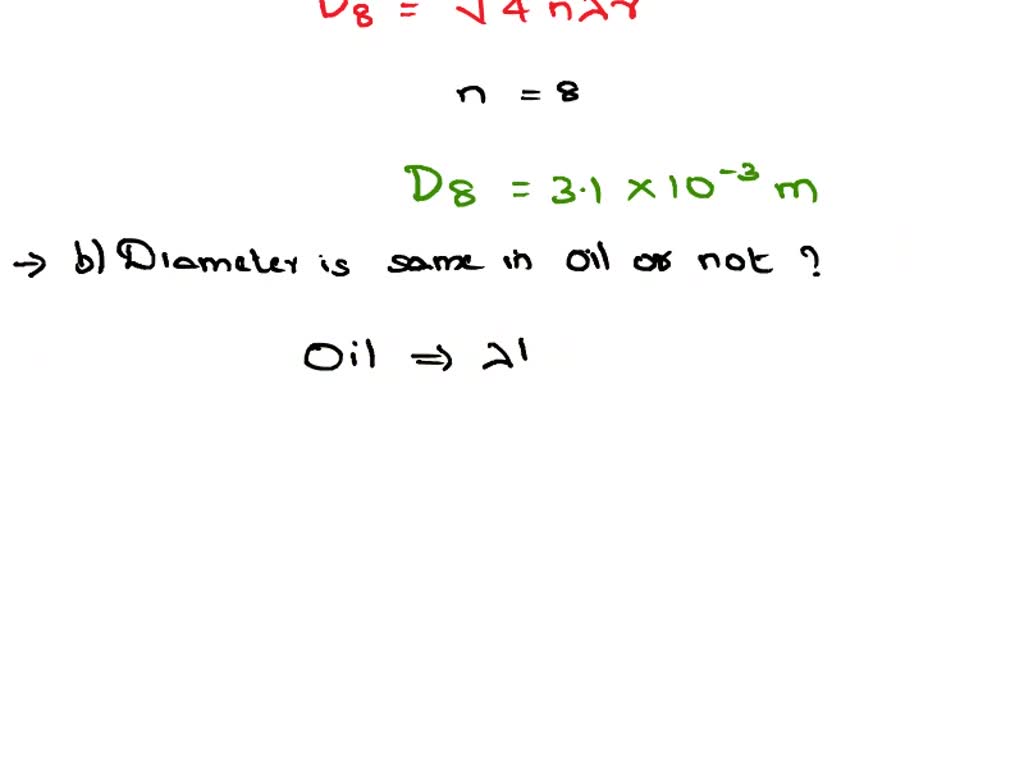 D8 = √4nλr
n = 8
D8 = 3.1 × 10⁻³ m
→ b) Diameter is same in oil or not ?
Oil ⇒ λ'